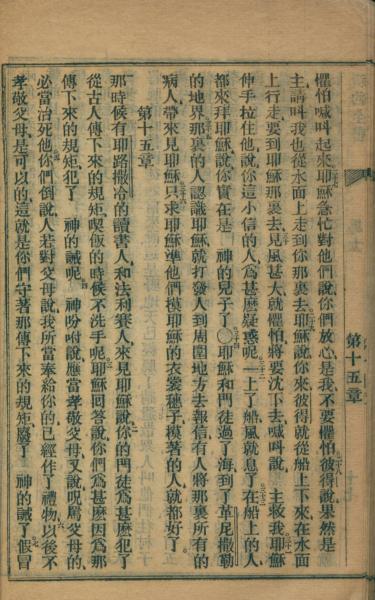 懼怕喊叫起來耶穌急忙對他們說你們放心是我不要懼怕彼得說果然是
主請叫我也從水面上走到你那裏去耶穌說你來彼得就從船上下來在水面
上行走要到耶穌那裏去見風甚大就懼怕將要沈下去喊叫說　主救我耶穌
伸手拉住他說你這小信的人爲甚麽疑惑呢一上了船風就息了在船上的人
都來拜耶穌說你實在是　神的兒子了〇耶穌和門徒過了海到了革尼撒勒
的地界那裏的人認識耶穌就打發人到周圍地方去報信有人將那裏所有的
病人帶來見耶穌只求耶穌準他們摸耶穌的衣裳穗子摸著的人就都好了
第十五章
那時候有耶路撒冷的讀書人和法利賽人來見耶穌說你的門徒爲甚麽犯了
從古人傳下來的規矩喫飯的時候不洗手呢耶穌回答說你們爲甚麽因爲那
傳下來的規矩犯了　神的誡呢　神吩咐說應當孝敬父母又說咒罵父母的
必當治死他你們倒說人若對父母說我所當奉給你的已經作了禮物以後不
孝敬父母是可以的這就是你們守著那傳下來的規矩廢了　神的誡了假冒
第十五章